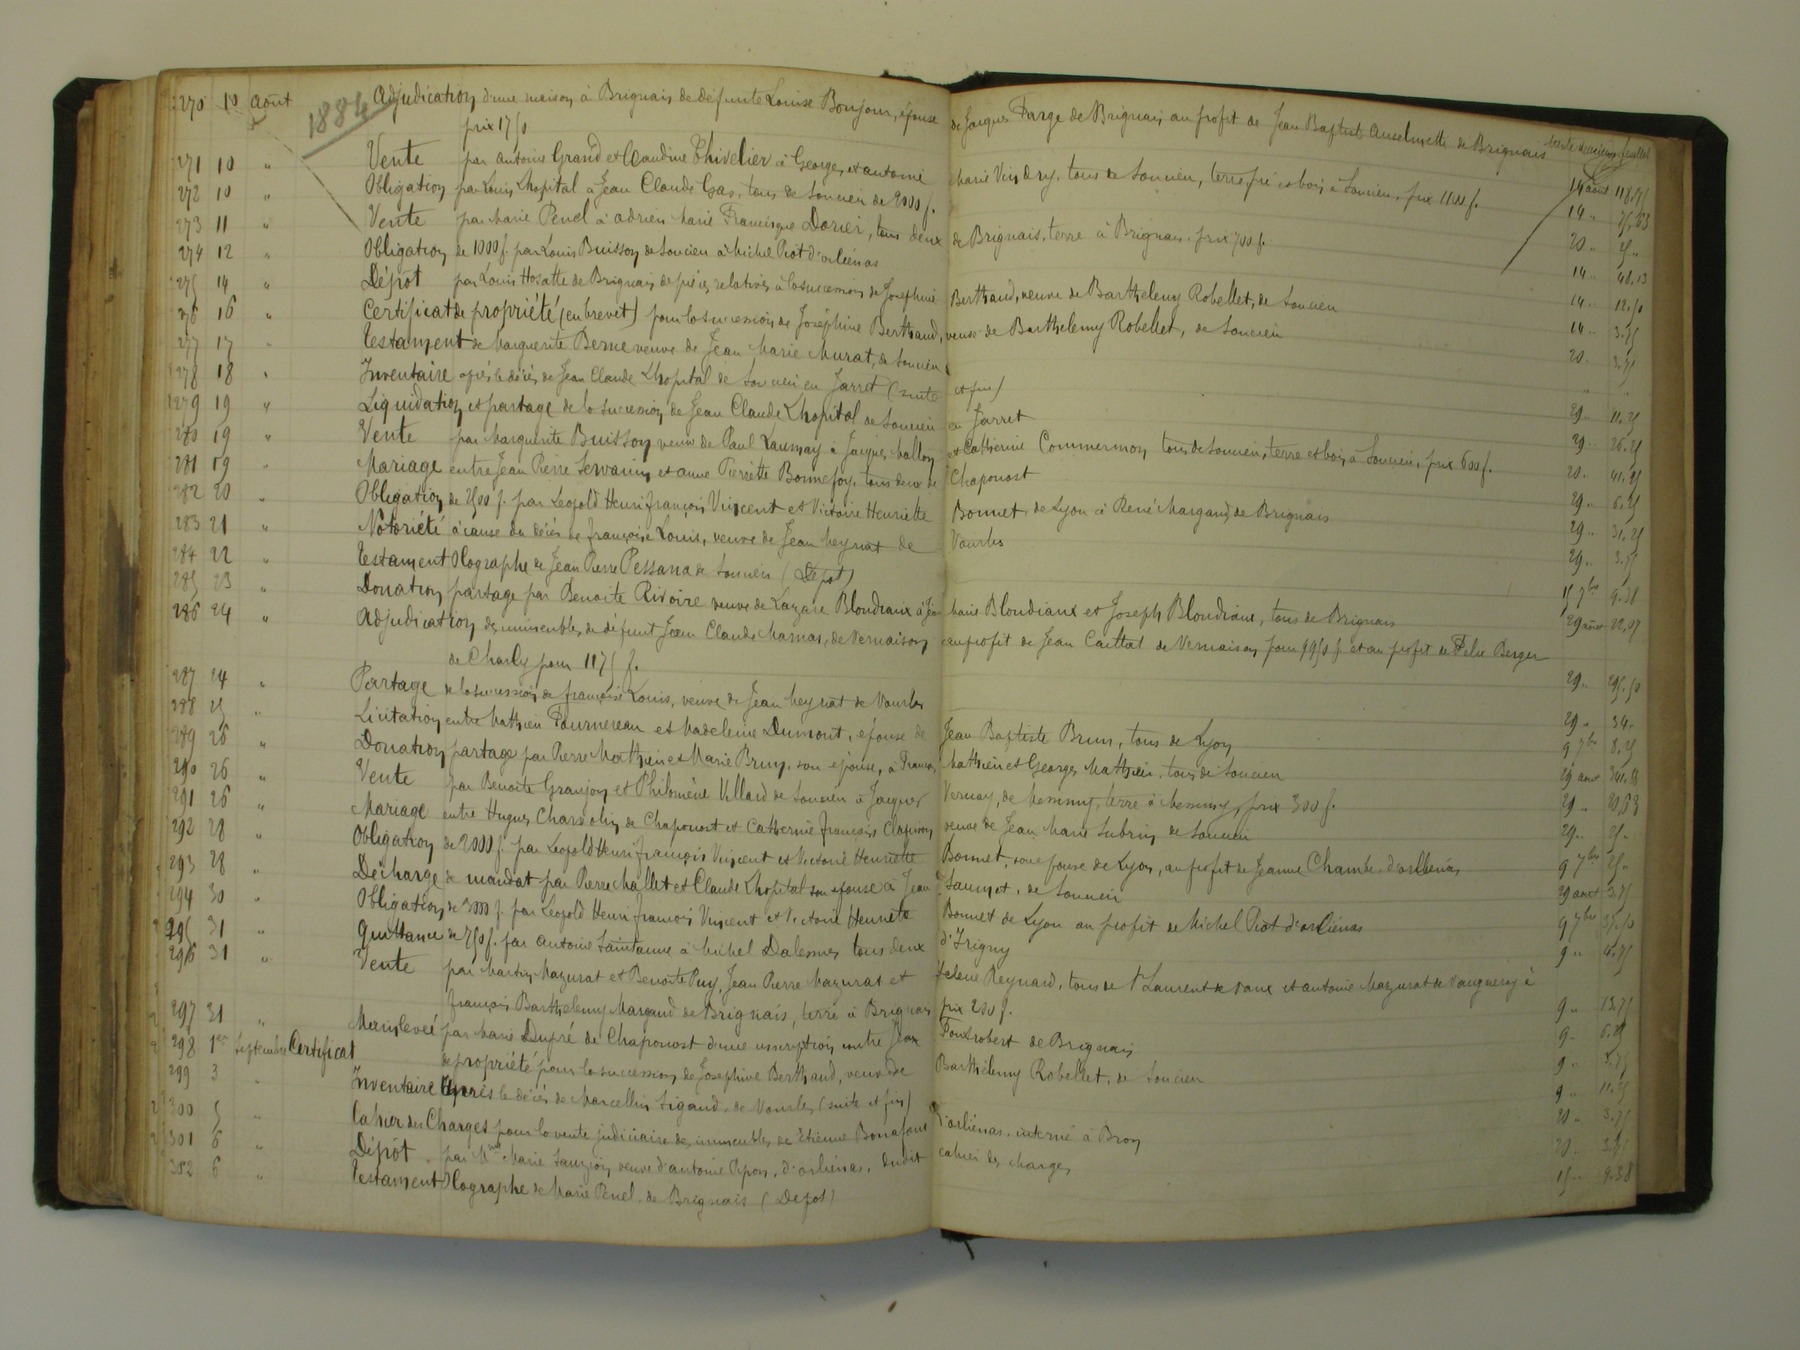 270 10 août 1884 Adjudication d'une maison à Brignais de défunte Louise Bonjour, épouse de Jacques Farge de Brignais au profit de Jean Baptiste Anselmette de Brignais
prix 1750 14 août 118.75
271 10 " Vente par Antoine Grand et Claudine Thivelier à Georges et Antoine Marie Vindry, tous de Soucieu, terre pré et bois à Soucieu, prix 1100 f. 14 "
272 10 " Obligation par Louis Lhopital à Jean Claude Gas, tous de Soucieu de 2000 f. 20 "
273 11 " Vente par Marie Penel à Adrien Marie Francisque Dorier, tous deux de Brignais, terre à Brignais, prix 700 f. 14 " 48.13
274 12 " Obligation de 1000 f. par Louis Buisson de Soucieu à Michel Piot d'orliénas 14 " 12.50
275 14 " Dépôt par Louis Hosatte de Brignais de pièces relatives à la succession de Joséphine Berthaud, veuve de Barthelemy Robellet, de Soucieu 14 " 3.75
276 16 " Certificat de propriété (en brevet) pour la succession de Joséphine Berthaud, veuve de Barthelemy Robellet, de Soucieu 20 " 3.75
277 17 " Testament de Marguerite Berne veuve de Jean Marie Murat, de Soucieu " "
278 18 " Inventaire après le décès de Jean Claude Lhopital de Soucieu en Jarret (suite et fin) 29 " 11.25
279 19 " Liquidation et partage de la succession de Jean Claude Lhopital de Soucieu en Jarret 29 " 26.25
280 19 " Vente par Marguerite Buisson veuve de Paul Launay à Jacques Mallon et Catherine Commermon, tous de Soucieu, terre et bois à Soucieu, prix 600 f. 20 " 41.25
281 19 " Mariage entre Jean Pierre Servanin et Anne Pierrette Bonnefoy, tous deux de Chaponost 29 " 6.25
282 20 " Obligation de 2500 f. par Leopold Henri François Vincent et Victoire Henriette Bonnet, de Lyon à René Margand, de Brignais 29 " 31.25
283 21 " Notoriété à cause du décès de françoise Louis, veuve de Jean Meynat de Vourles 29 " 3.75
284 22 " Testament Olographe de Jean Pierre Pessana de Soucieu (Dépôt) 15 7bre 9.38
285 23 " Donation partage par Benoite Rivoire veuve de Lazare Blondiaux à Jean Marie Blondiaux et Joseph Blondiaux, tous de Brignais 29 août 22.07
286 24 " Adjudication des immeubles de défunt Jean Claude Mamas, de Vernaison au profit de Jean Caillat de Vernaison pour 1950 f. et au profit de Felix Berger
de Charly pour 1175 f. 29 " 295.50
287 24 " Partage de la succession de françoise Louis, veuve de Jean Meynat de Vourles 29 " 34 "
288 25 " Licitation entre Mathieu Fournereau et Madeleine Dumont, épouse de Jean Baptiste Brun, tous de Lyon 9 7bre 8.25
289 26 " Donation partage par Pierre Mathieu et Marie Brun, son épouse, à François Mathieu et Georges Mathieu, tous de Soucieu 29 août
290 26 " Vente par Benoite Granjon et Philomène Villard de Soucieu à Jacques Vernay, de Messimy, terre à Messimy, prix 300 f. 29 " 20.63
291 26 " Mariage entre Hugues Chavolin de Chaponost et Catherine françoise Clapiron veuve de Jean Marie Subrin, de Soucieu 29 " 25 "
292 28 " Obligation de 2000 f. par Leopold Henri François Vincent et Victoire Henriette Bonnet, son épouse de Lyon, au profit de Jeanne Chambe d'orliénas 9 7bre 25 "
293 28 " Décharge de mandat par Pierre Challet et Claude Lhopital son épouse à Jean Jaumet, de Soucieu 29 août 3.75
294 30 " Obligation de 3000 f. par Leopold Henri François Vincent et Victoire Henriette Bonnet de Lyon au profit de Michel Piot d'orliénas 9 7bre
295 31 " Quittance de 750 f. par Antoine Saintanne à Michel Dalesmes tous deux d'Irigny 9 "
296 31 " Vente par Martin Mazurat et Benoite Puy, Jean Pierre Mazurat et Helene Reynard, tous de St Laurent de Vaux et Antoine Mazurat de Vaugneray à
françois Barthelemy Margand de Brignais, terre à Brignais prix 200 f. 9 " 13.75
297 31 " Mainlevée par Marie Dupré de Chaponost d'une inscription contre Jean Fontrobert de Brignais 9 "
298 1er Septembre Certificat de propriété pour la succession de Josephine Berthaud, veuve de Barthélemy Robellet, de Soucieu 9 "
299 3 " Inventaire après le décès de Marcellin Sigaud, de Vourles (suite et fin) 9 "
300 5 " Cahier des Charges pour la vente judiciaire des immeubles de Etienne Bonafont d'orliénas, interné à Bron 20 " 3.75
301 6 " Dépôt par Marie Sauzion veuve d'Antoine Pipon, d'orliénas, dudit cahier des charges 20 "
302 6 " Testament Olographe de Marie Penel, de Brignais (Dépôt) 15 " 9.38